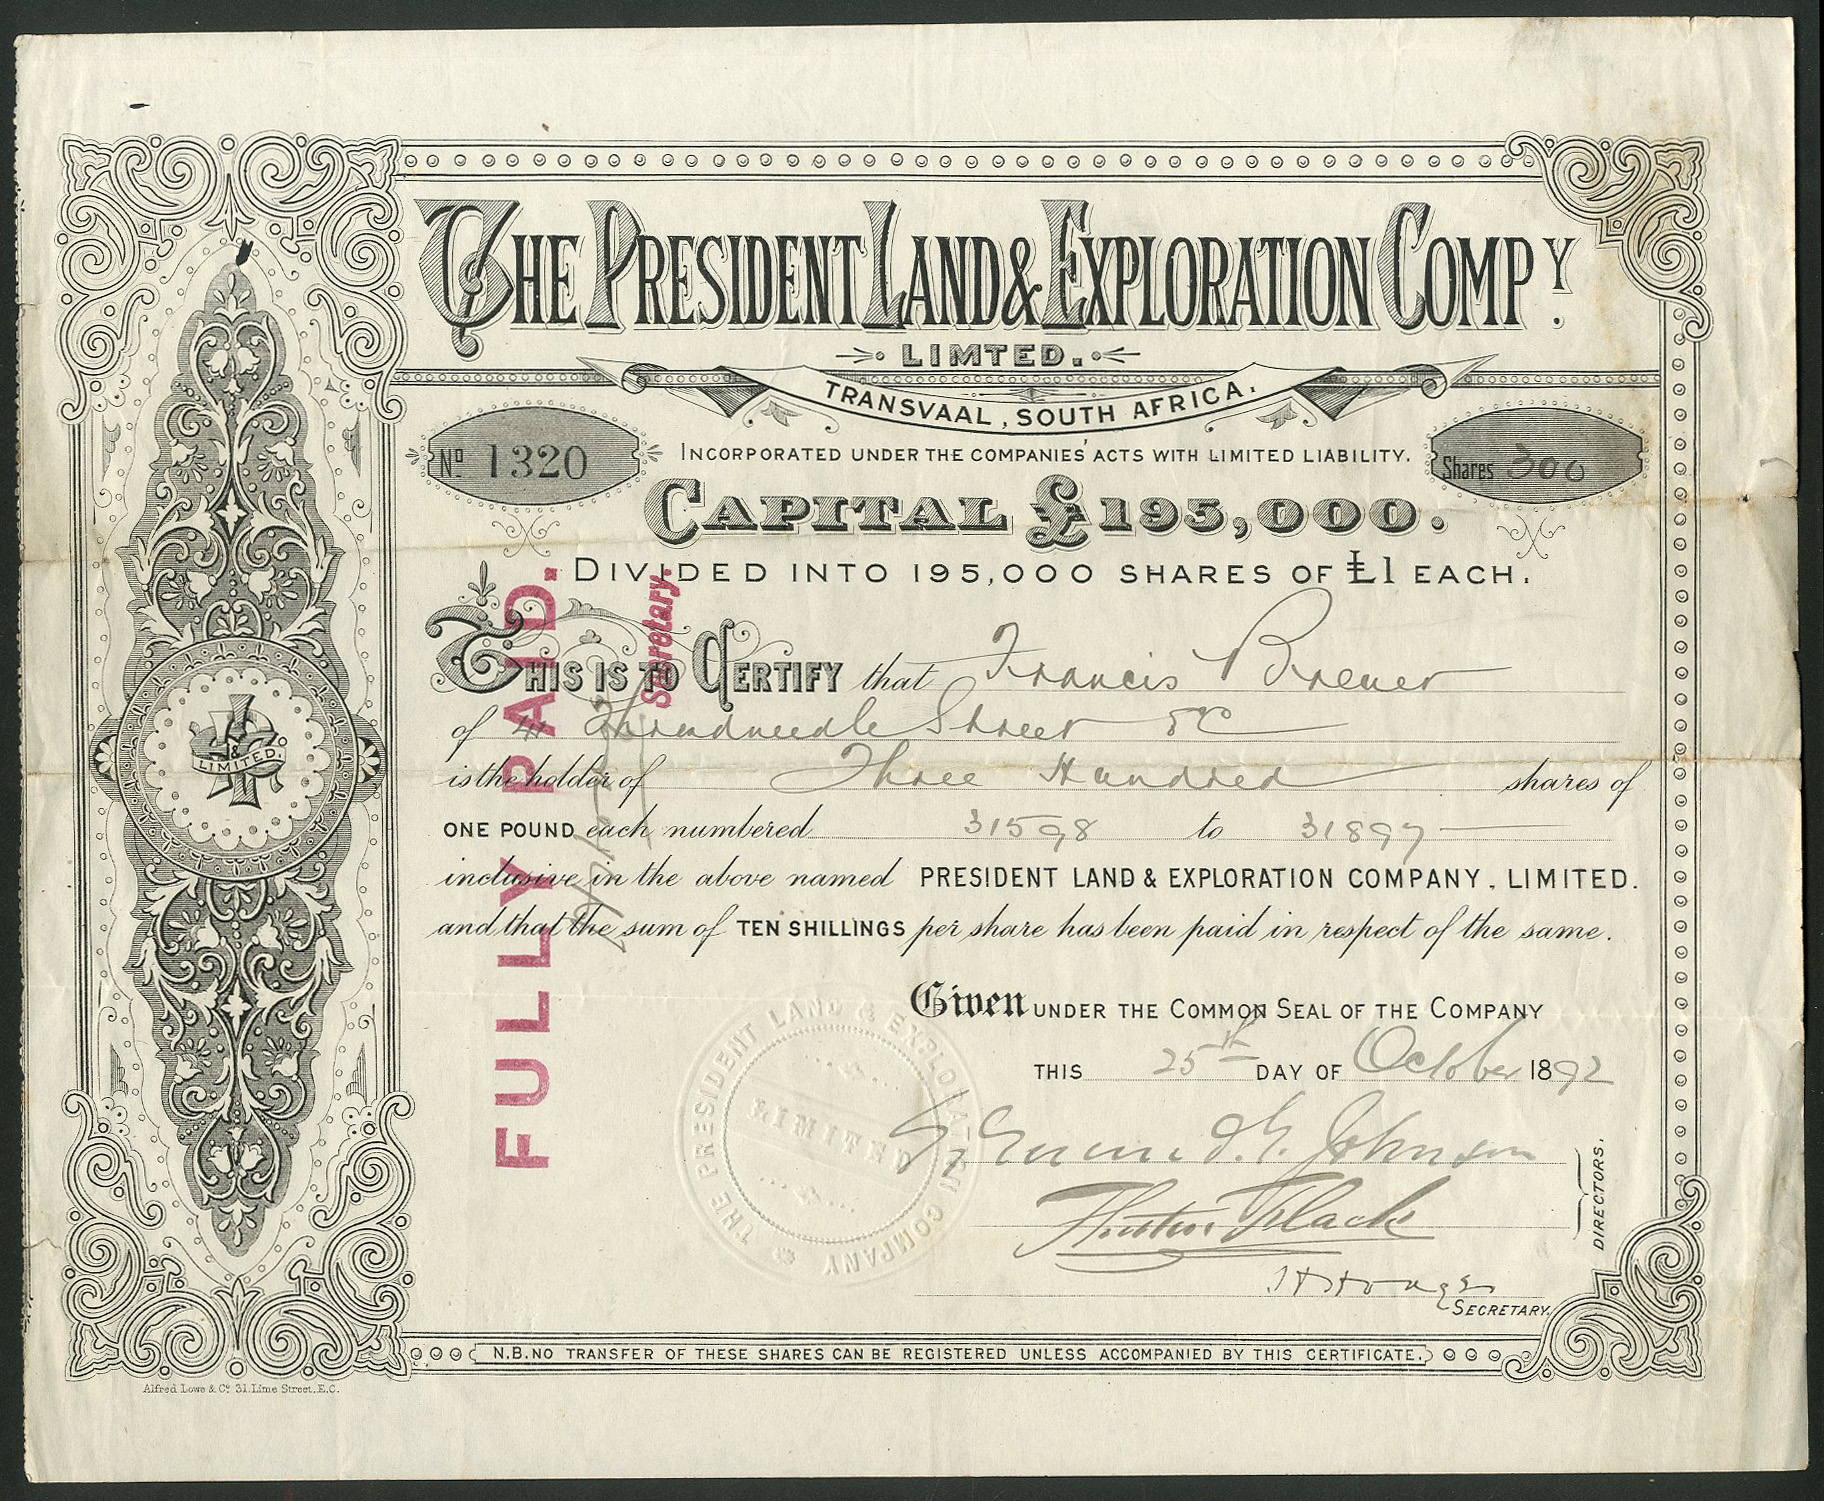 THE PRESIDENT LAND & EXPLORATION COMPY.
LIMTED.
TRANSVAAL, SOUTH AFRICA.
No 1320
INCORPORATED UNDER THE COMPANIES' ACTS WITH LIMITED LIABILITY.
Shares 300
CAPITAL £195,000.
DIVIDED INTO 195,000 SHARES OF £1 EACH.
THIS IS TO CERTIFY that Francis Brewer
of 41 Threadneedle Street EC
is the holder of Three Hundred shares of
ONE POUND each, numbered 31598 to 31897
inclusive in the above named PRESIDENT LAND & EXPLORATION COMPANY, LIMITED.
and that the sum of TEN SHILLINGS per share has been paid in respect of the same.
Given UNDER THE COMMON SEAL OF THE COMPANY
THIS 25th DAY OF October 1892
Johnson
Black
DIRECTORS.
SECRETARY.
FULLY PAID.
Secretary.
& LIMITED.
THE PRESIDENT LAND & EXPLORATION COMPANY
LIMITED
N.B. NO TRANSFER OF THESE SHARES CAN BE REGISTERED UNLESS ACCOMPANIED BY THIS CERTIFICATE.
Alfred Lowe & Co 31. Lime Street. E.C.